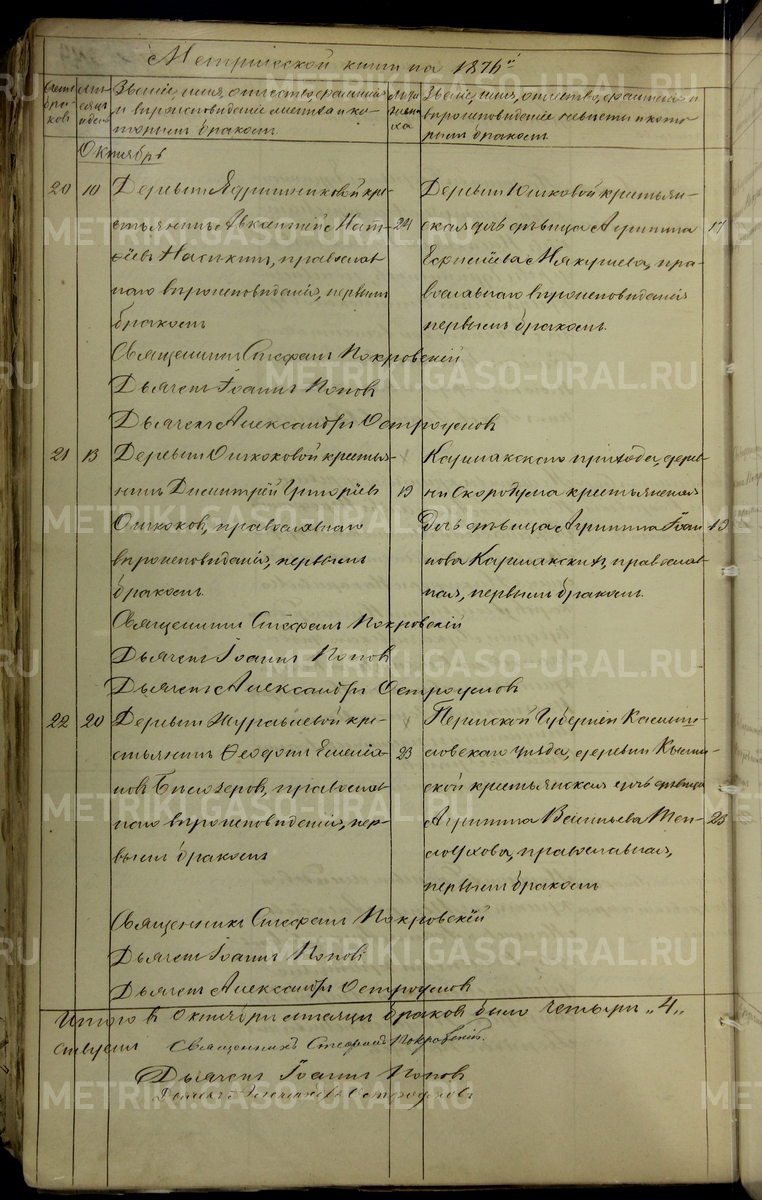 Метрической книги на 1876й
Счетъ браковъ
Мѣсяцъ и день
Званіе, имя, отчество, фамилія и вѣроисповѣданіе жениха и которымъ бракомъ.
Лѣта жениха
Званіе, имя, отчество, фамилія и вѣроисповѣданіе невѣсты и которымъ бракомъ.
Октябрь
20 10 Деревни Ядрышниковой кре-
стьянинъ Авксентій Мат- 24
ѳіевъ Насѣкинъ, православ-
наго вѣроисповѣданія, первымъ
бракомъ
Деревни Юшковой крестьян-
ская дочь дѣвица Агрипина 17
Мякушева, пра-
вославнаго вѣроисповѣданія
первымъ бракомъ.
Священникъ Стефанъ Покровскій
Дьячекъ Іоаннъ Поповъ
Дьячекъ Александръ Остроумовъ
21 13 Деревни Ошкоковой крестья-
нинъ Димитрій Григоріевъ 19
Ошкоковъ, православнаго
вѣроисповѣданія, первымъ
бракомъ.
прихода, дерев-
ни Скородума крестьянская
дочь дѣвица Агрипина Іоан- 19
нова православ-
ная, первымъ бракомъ.
Священникъ Стефанъ Покровскій
Дьячекъ Іоаннъ Поповъ
Дьячекъ Александръ Остроумовъ
22 20 Деревни Журавлевой кре-
стьянинъ Ѳеодотъ Емеліа- 23
новъ Бѣлозеровъ, православ-
наго вѣроисповѣданія, пер-
вымъ бракомъ
Пермской Губерніи Камыш-
ловскаго уѣзда, деревни
крестьянская дочь дѣвица
Агрипина Васильева Теп- 23
лоухова, православная,
первымъ бракомъ
Священникъ Стефанъ Покровскій
Дьячекъ Іоаннъ Поповъ
Дьячекъ Александръ Остроумовъ
Итого въ Октябрѣ мѣсяцѣ браковъ было четыре „4„
Священникъ Стефанъ Покровскій.
Дьячекъ Іоаннъ Поповъ
Дьячекъ Александръ Остроумовъ
METRIKI.GASO-URAL.RU